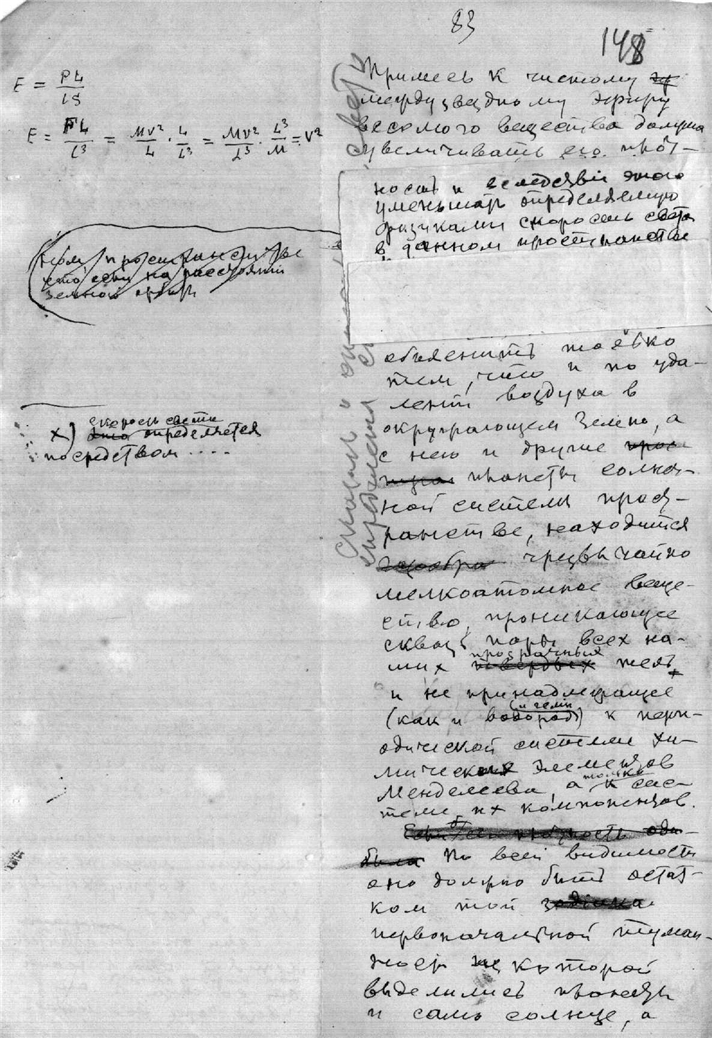 83
148
E = PL / L3
E = FL / L³ = MV² / L · L / L³ = MV² / L³ · L³ / M = V²
земной орбиты
x) скорость света
это определяется
посредством ....
Примесь к чистому
междузвездному эфиру
весомого вещества должна
увеличивать его плот-
ность и вследствие этого
уменьшать определяемую
физиками скорость света
в данном пространстве
объяснить только
тем, что и по уда-
лении воздуха в
окружающем Землю, а
с нею и другие
планеты солнеч-
ной системы прост-
ранстве, находится
чрезвычайно
мелкоатомное веще-
ство, проникающее
сквозь поры всех на-
ших прозрачных
твердых тел
и не принадлежащее
(как и водород и гелий) к пери-
одической системе хи-
мических элементов
Менделеева, а только к сис-
теме их компонентов.
По всей видимости
оно должно быть остат-
ком той
первоначальной туман-
ности из которой
выделились планеты
и само солнце, а